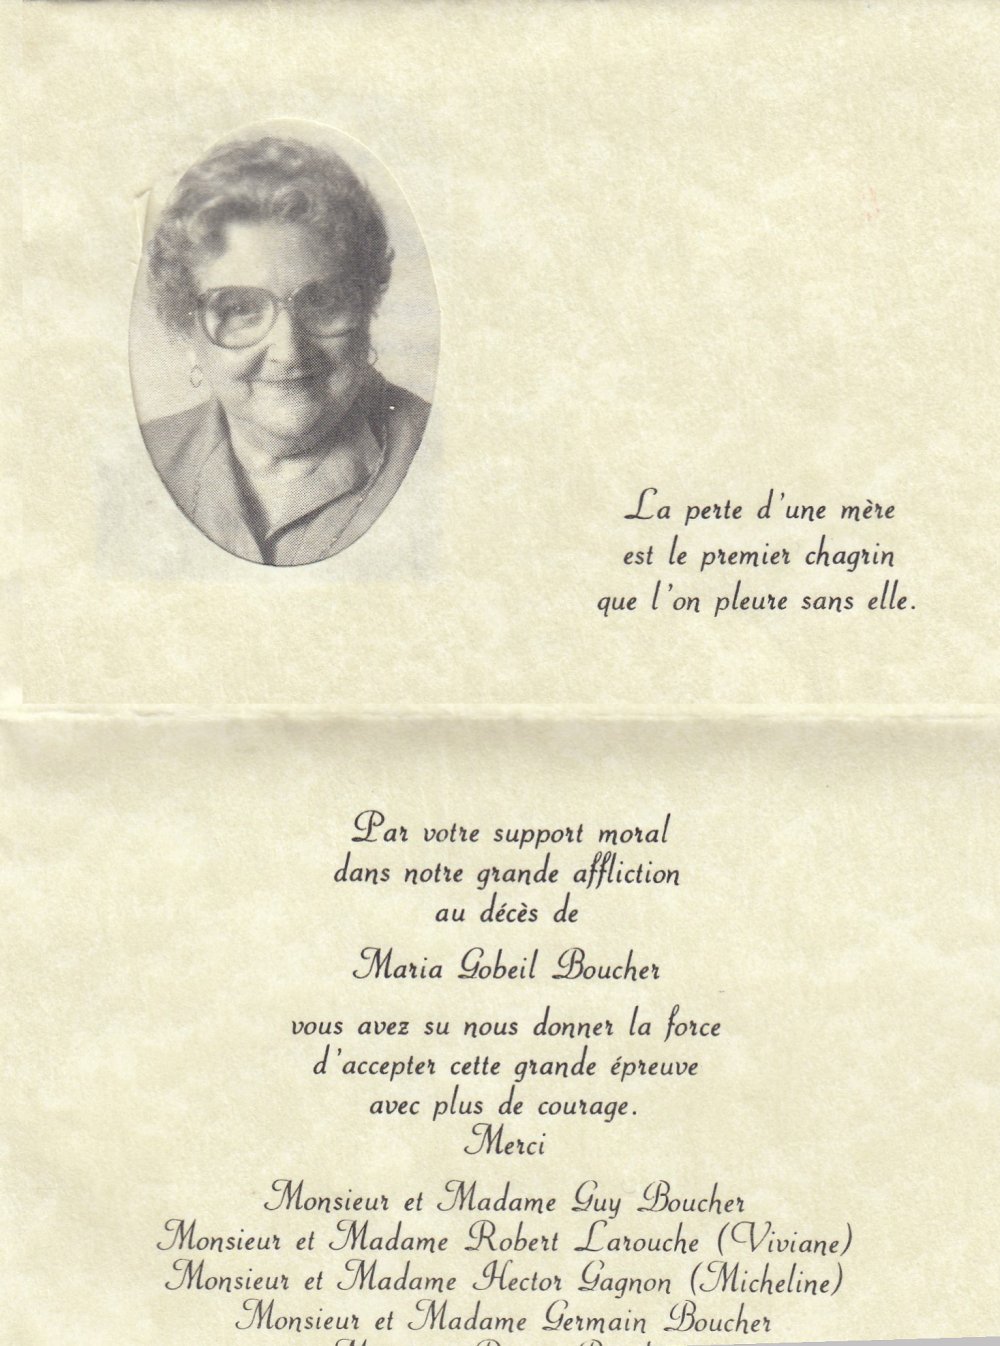 La perte d'une mère
est le premier chagrin
que l'on pleure sans elle.
Par votre support moral
dans notre grande affliction
au décès de
Maria Gobeil Boucher
vous avez su nous donner la force
d'accepter cette grande épreuve
avec plus de courage.
Merci
Monsieur et Madame Guy Boucher
Monsieur et Madame Robert Larouche (Viviane)
Monsieur et Madame Hector Gagnon (Micheline)
Monsieur et Madame Germain Boucher